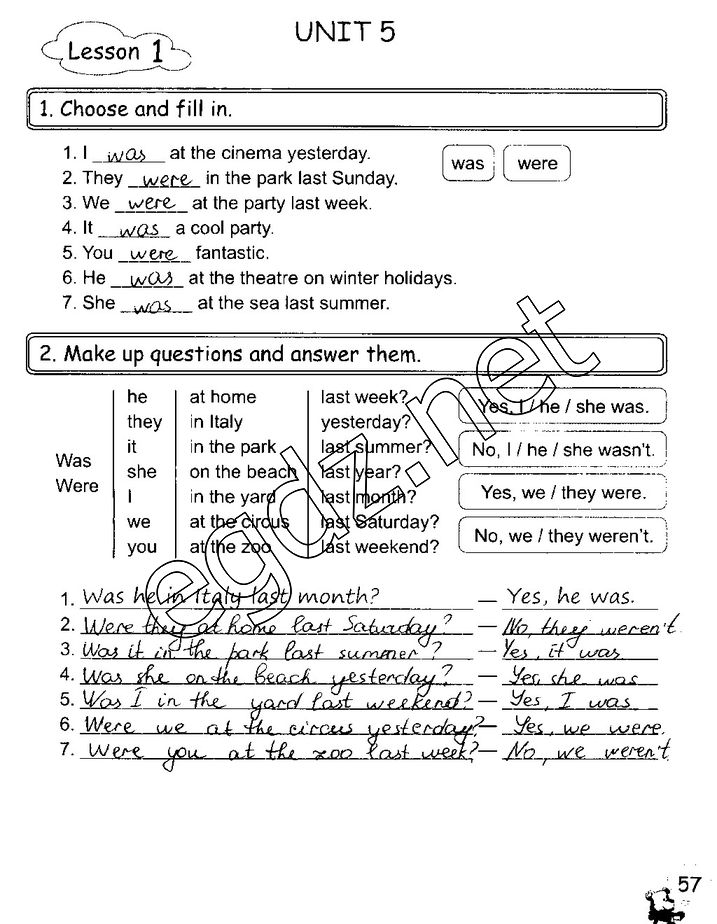 UNIT 5
Lesson 1
1. Choose and fill in.
1. I was at the cinema yesterday.
2. They were in the park last Sunday.
3. We were at the party last week.
4. It was a cool party.
5. You were fantastic.
6. He was at the theatre on winter holidays.
7. She was at the sea last summer.
was were
2. Make up questions and answer them.
Was
Were
he at home last week?
they in Italy yesterday?
it in the park last summer?
she on the beach last year?
I in the yard last month?
we at the circus last Saturday?
you at the zoo last weekend?
Yes, I / he / she was.
No, I / he / she wasn't.
Yes, we / they were.
No, we / they weren't.
1. Was he in Italy last month? — Yes, he was.
2. Were they at home last Saturday? — No, they weren't.
3. Was it in the park last summer? — Yes, it was
4. Was she on the beach yesterday? — Yes, she was
5. Was I in the yard last weekend? — Yes, I was
6. Were we at the circus yesterday? — Yes, we were.
7. Were you at the zoo last week? — No, we weren't
egdz.net
57